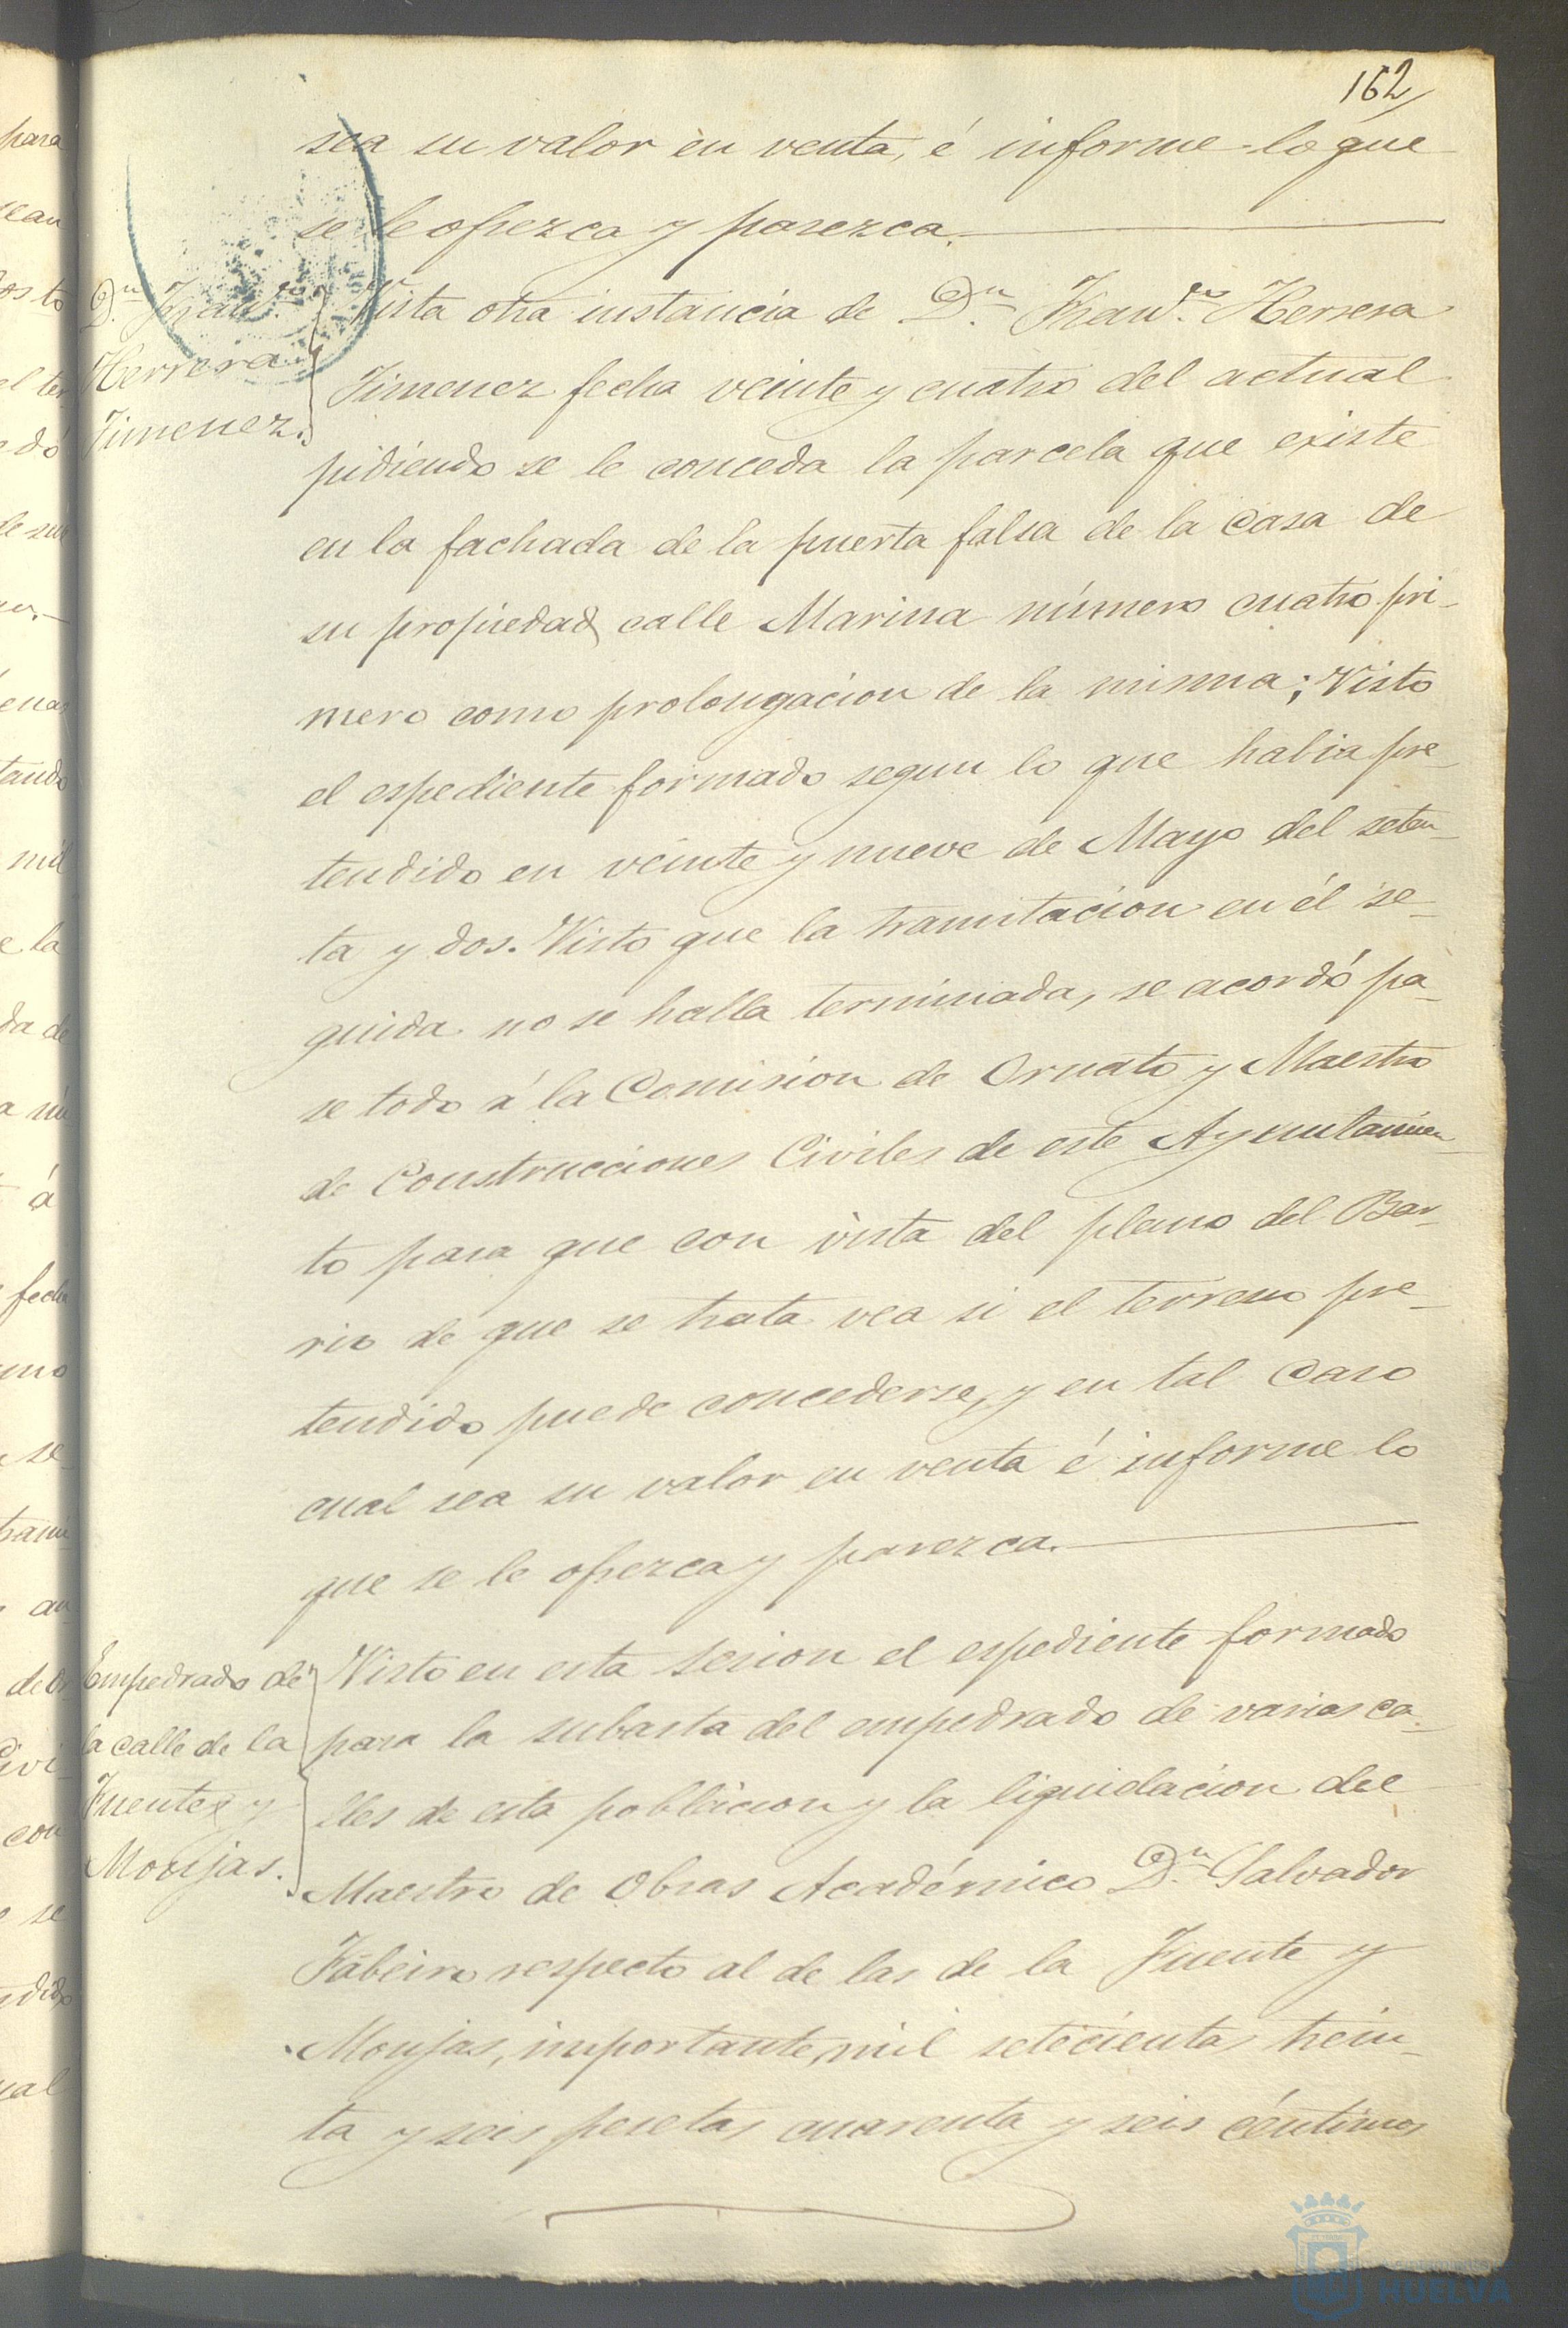 162
sea su valor en venta, é informe lo que
se le ofrezca y parezca.
D.n Fran.co
Herrera
Jimenez.
Vista otra instancia de D.n Fran.co Herrera
Jimenez fecha veinte y cuatro del actual
pidiendo se le conceda la parcela que existe
en la fachada de la puerta falsa de la casa de
su propiedad calle Marina número cuatro pri-
mero como prolongacion de la misma; Visto
el espediente formado segun lo que habia pre-
tendido en veinte y nueve de Mayo del seten-
ta y dos. Visto que la tramitacion en él se-
guida no se halla terminada, se acordó pa-
se todo á la Comision de Ornato y Maestro
de Construcciones Civiles de este Ayuntamien-
to para que con vista del plano del Bar-
rio de que se trata vea si el terreno pre-
tendido puede concederse, y en tal caso
cual sea su valor en venta é informe lo
que se le ofrezca y parezca.
Empedrado de
la calle de la
Fuente y
Monjas.
Visto en esta sesion el espediente formado
para la subasta del empedrado de varias ca-
lles de esta poblacion y la liquidacion del
Maestro de Obras Académico D.n Salvador
Fabeiro respecto al de las de la Fuente y
Monjas, importante, mil setecientas trein-
ta y seis pesetas cuarenta y seis céntimos
HUELVA